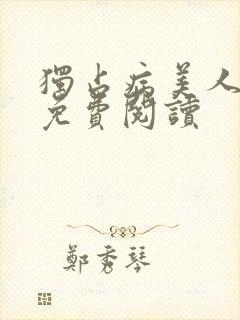 獨占病美人
免費閱讀
鄭秀琴